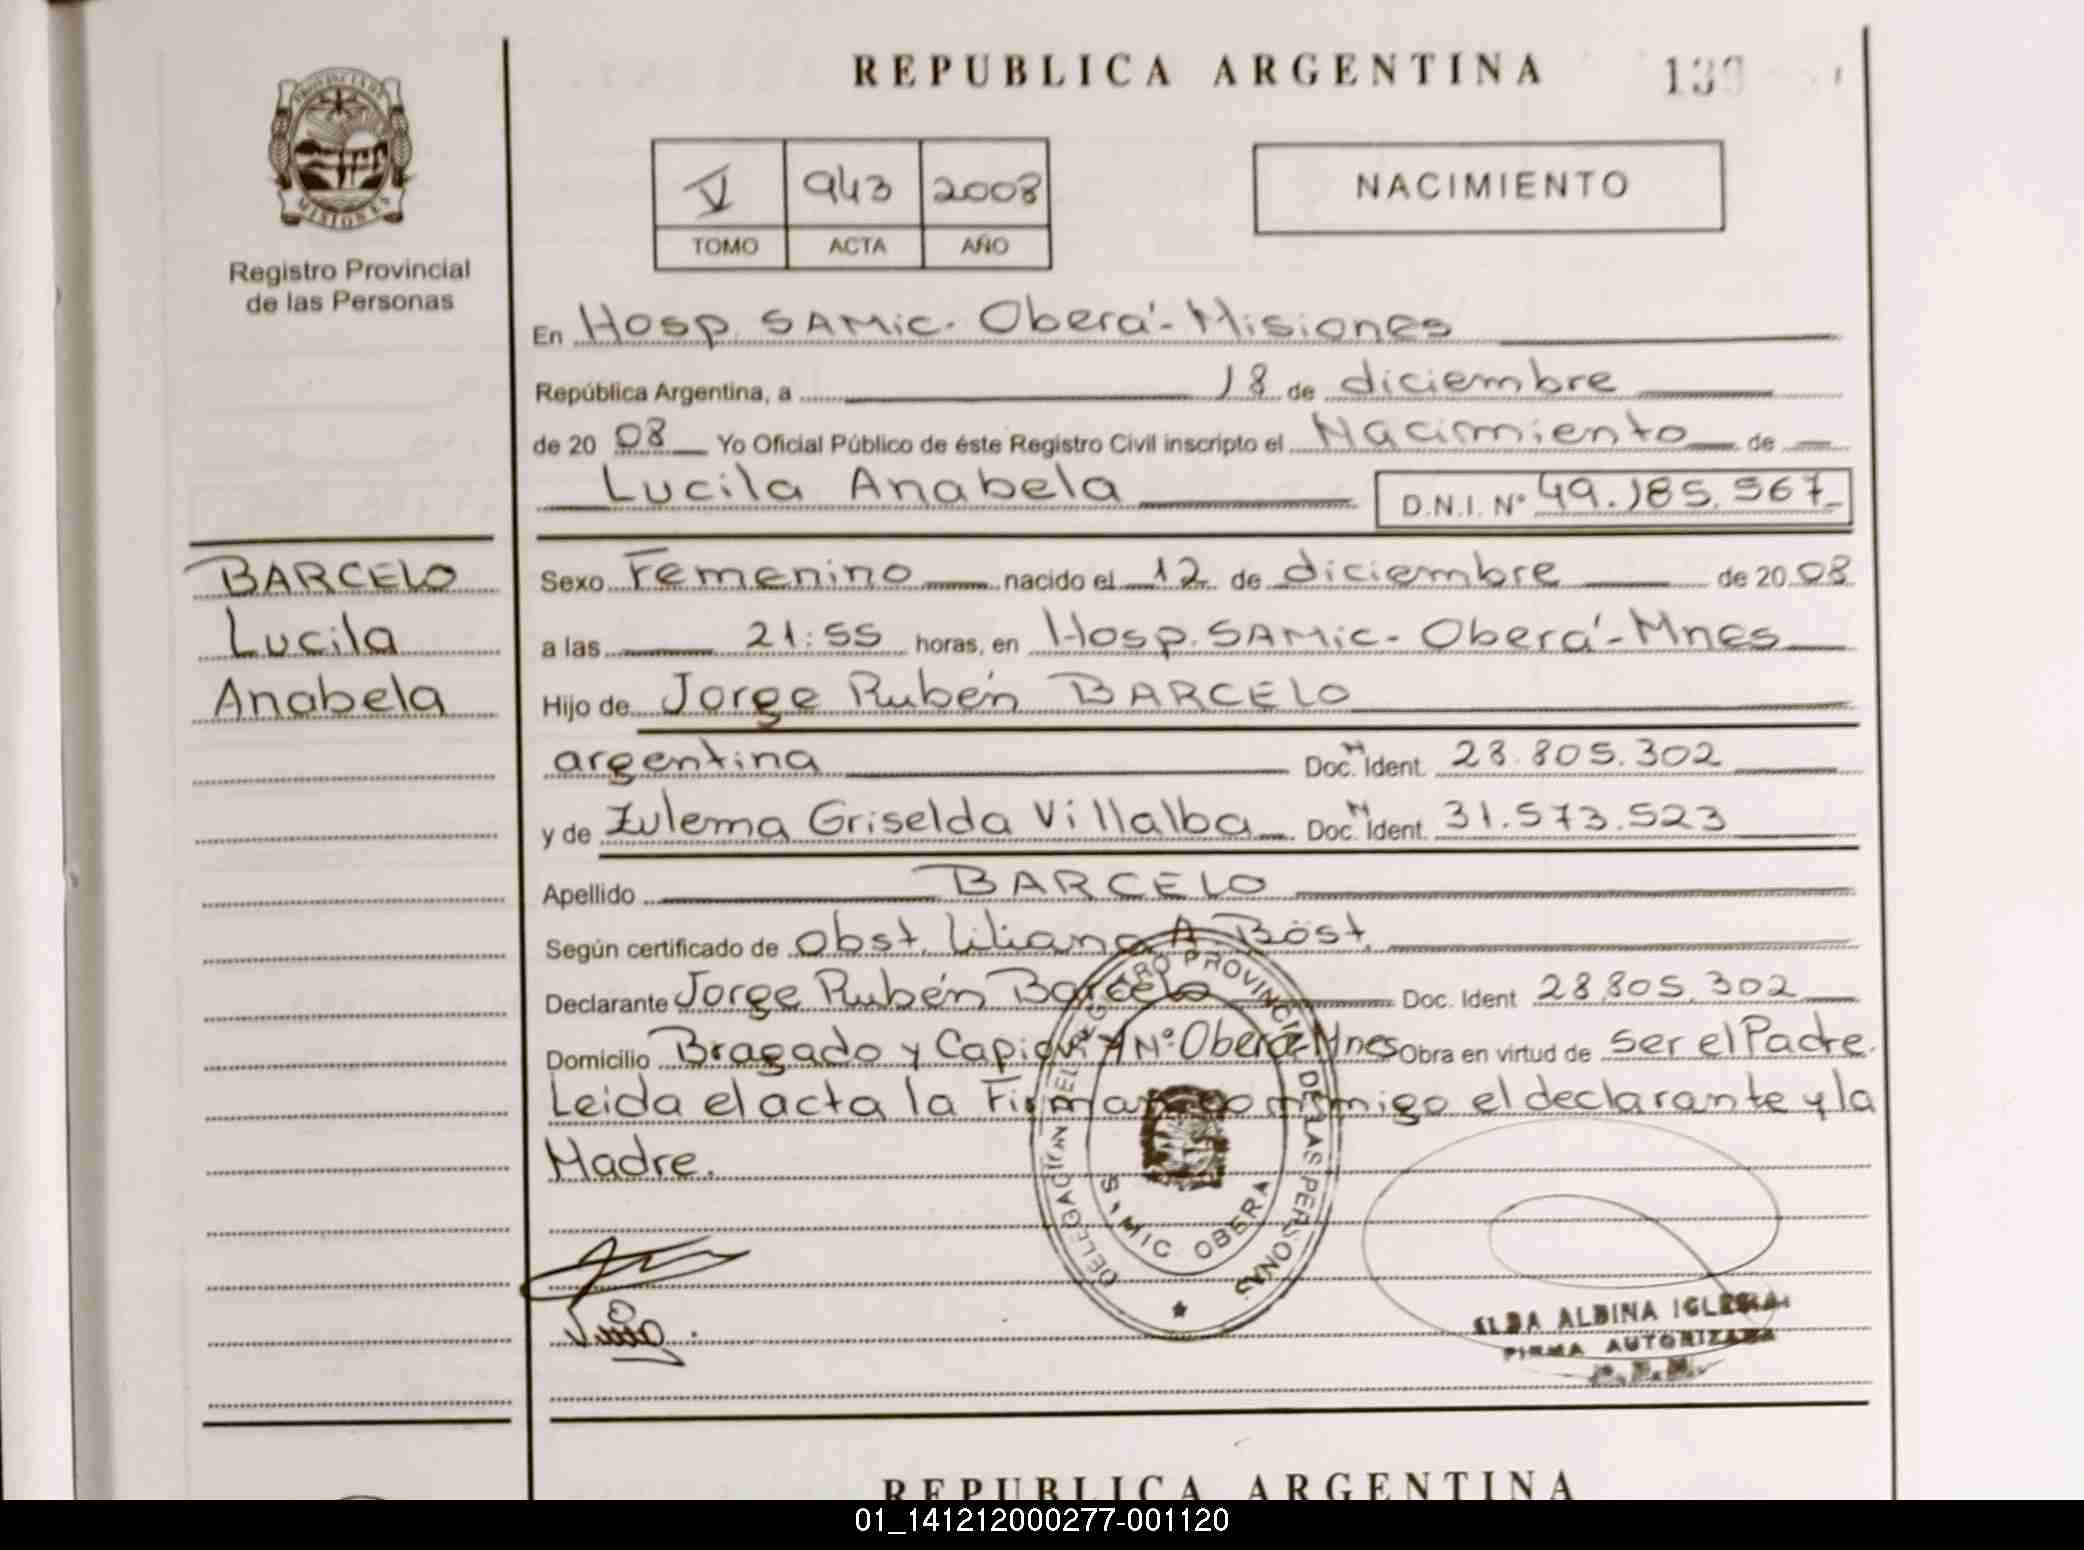 REPUBLICA ARGENTINA
PROVINCIA DE
MISIONES
Registro Provincial
de las Personas
V 943 2008
TOMO ACTA AÑO
NACIMIENTO
En Hosp. SAMic. Oberá - Misiones
República Argentina, a 18 de diciembre
de 20 08 Yo Oficial Público de éste Registro Civil inscripto el Nacimiento de
Lucila Anabela D.N.I. Nº 49.185.567
BARCELO
Lucila
Anabela
Sexo Femenino nacido el 12 de diciembre de 20 08
a las 21:55 horas, en Hosp. SAMic - Oberá - Mnes
Hijo de Jorge Rubén BARCELO
argentina Doc. N Ident. 28.805.302
y de Zulema Griselda Villalba Doc. N Ident. 31.573.523
Apellido BARCELO
Según certificado de Obst. Liliana A. Böst.
Declarante Jorge Rubén Barcelo Doc. Ident 28.805.302
Domicilio Bragado y Nº Oberá-Mnes Obra en virtud de Ser el Padre.
Leida el acta la Firman conmigo el declarante y la
Madre.
DELEGACION DEL REGISTRO PROVINCIAL DE LAS PERSONAS
SAMIC OBERA
ELBA ALBINA IGLESIA
FIRMA AUTORIZADA
REPUBLICA ARGENTINA
01_141212000277-001120